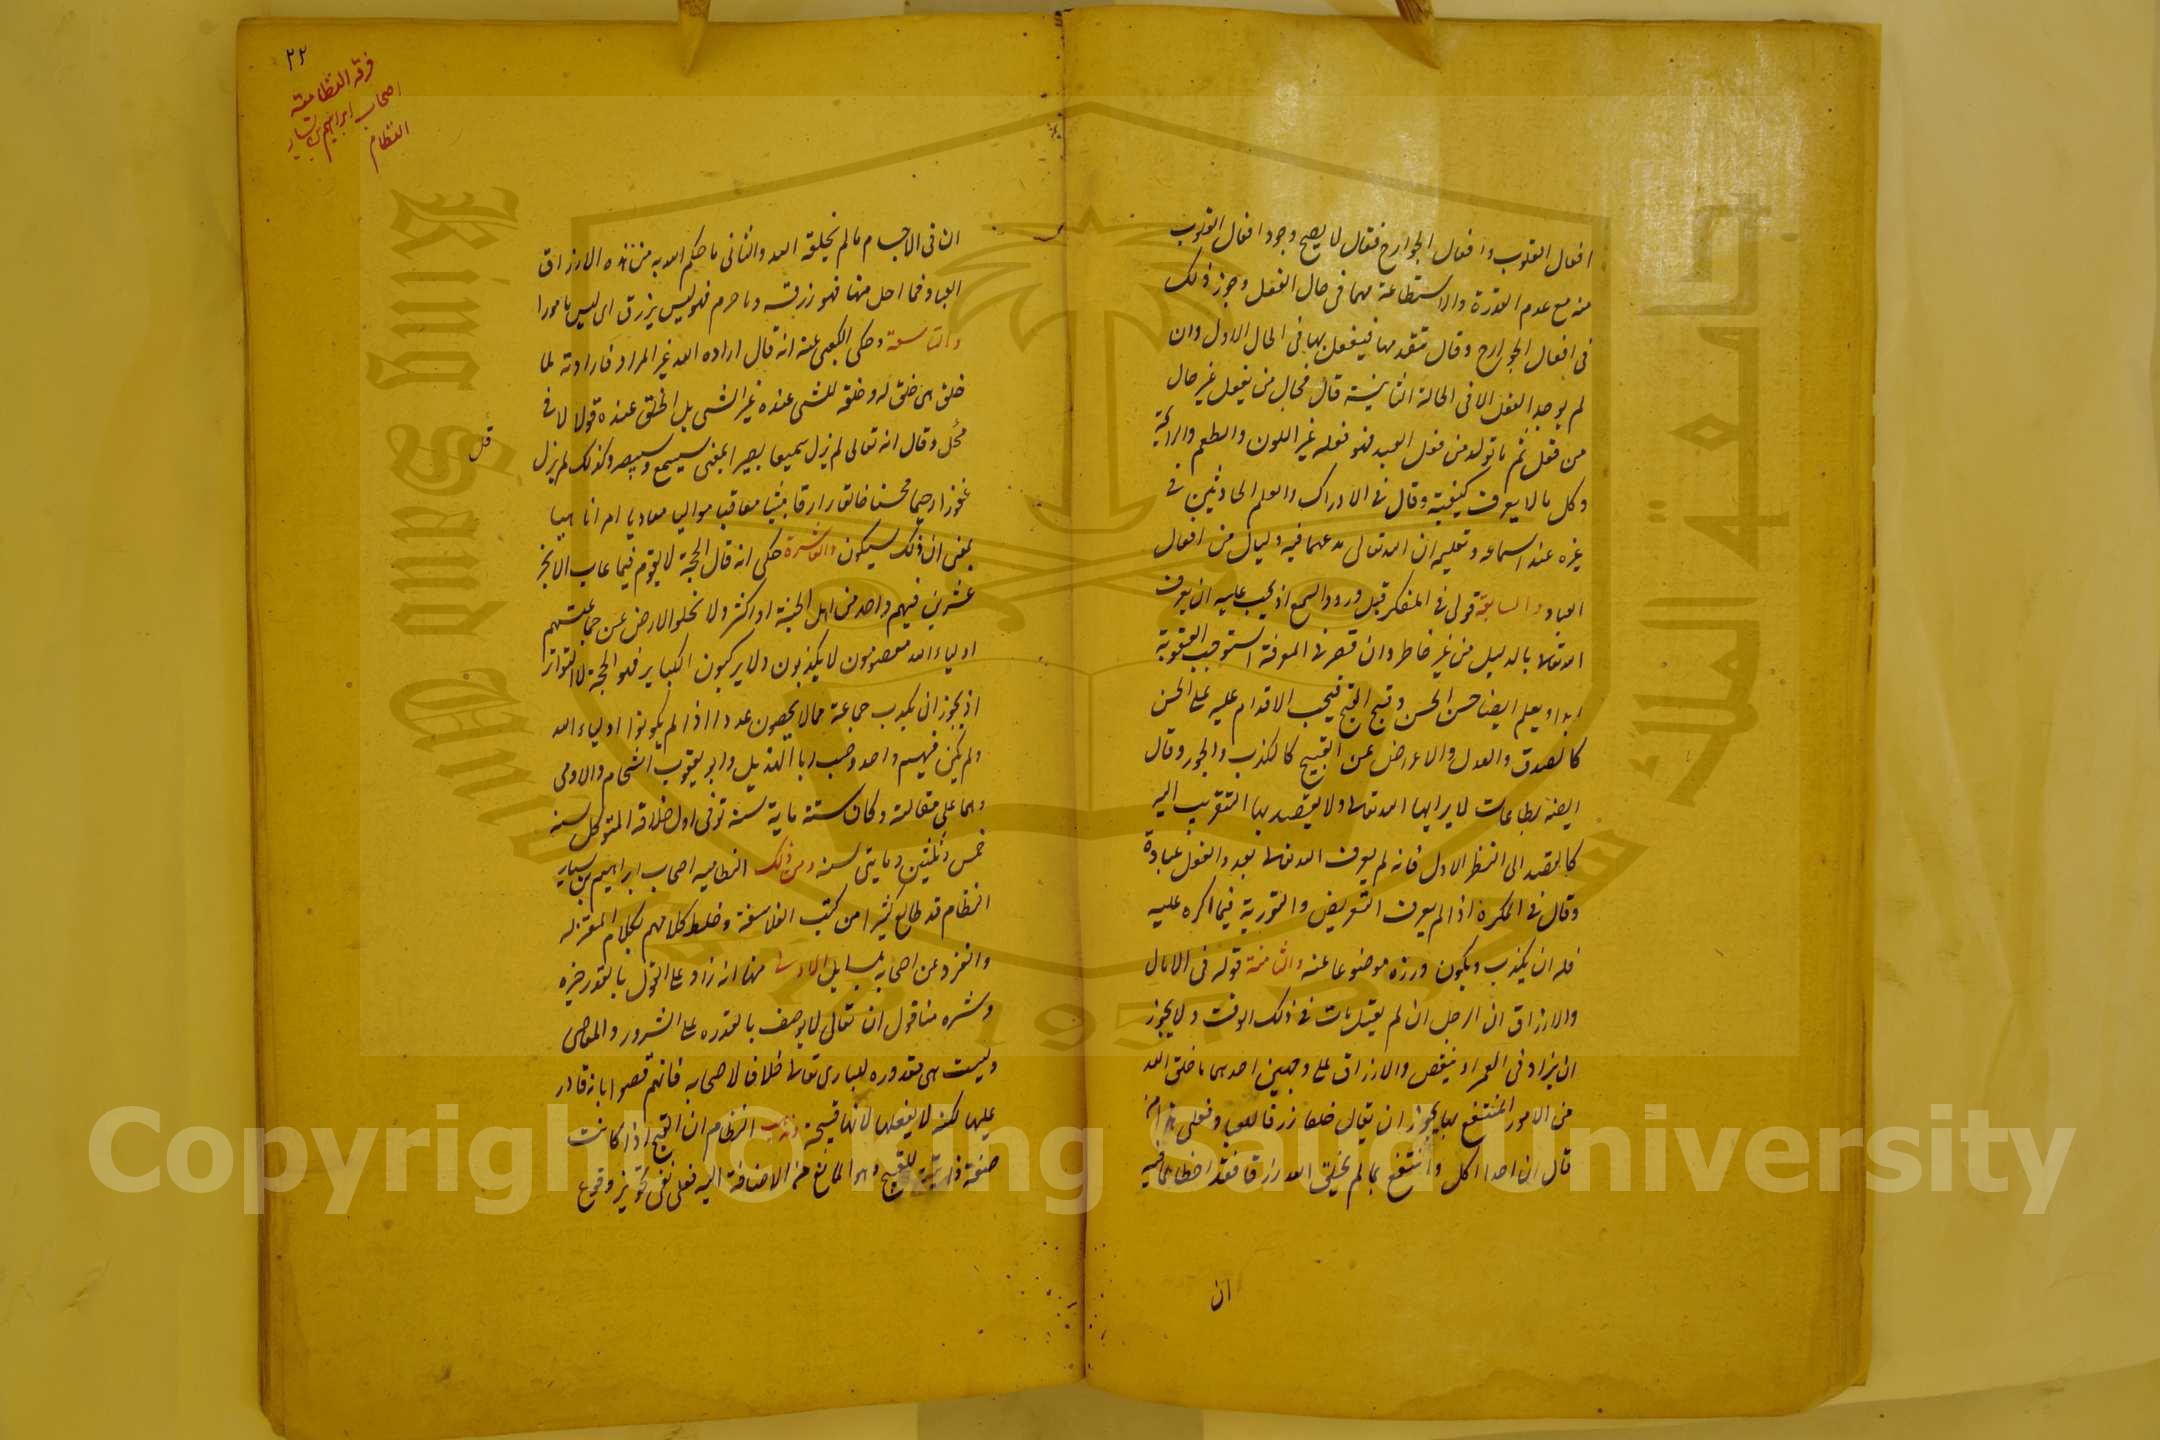 افعال القلوب وافعال الجوارح فقال لا يصح وجود افعال القلوب
منه مع عدم القدرة والاستطاعة مهما فى حال الفعل وجوز ذلك
فى افعال الجوارح وقال متقدمها فيفعل بها فى الحال الاول وان
لم يوجد الفعل الا فى الحالة الثانية قال فحال من يفعل غير حال
من فعل ثم ما تولد من فعل العبد فهو فعله غير اللون والطعم والرائحة
وكل ما لا يعرف كيفيته وقال فى الادراك والعلم الحادثين فى
غيره عند اسماعه وتعليمه ان الله تعالى يبدعهما فيه وليسا من افعال
العباد والسابعة قوله فى المتفكر قبل ورود السمع انه يجب عليه ان يعرف
الله تعالى بالدليل من غير خاطر وان قصر فى المعرفة استوجب العقوبة
ابدا ويعلم ايضا حسن الحسن وقبح القبح فيجب الاقدام عليه على الحسن
كالصدق والعدل والاعراض عن القبيح كالكذب والجور وقال
ايضا بطاعات لا يراد بها الله تعالى ولا يقصد بها التقرب اليه
كالقصد الى النظر الاول فانه لم يعرف الله تعالى بعد والفعل عبادة
وقال فى المكره اذا لم يعرف التعريض والتورية فيما اكره عليه
فله ان يكذب ويكون وزره موضوعا عنه والثامنة قوله فى الاجال
والارزاق ان الرجل ان لم يقتل مات فى ذلك الوقت ولا يجوز
ان يزاد فى العمر او ينقص والارزاق على وجهين احدهما ما خلق الله
من الامور المنتفع بها يجوز ان يقال خلقها رزقا للعباد فعلى هذا من
قال ان احدا اكل وانتفع بما لم يخلق الله رزقا فقد اخطا لما فيه
ان
٢٢
فرقه النظاميه
اصحاب ابراهيم بن سيار
النظام
ان فى الاجسام ما لم يخلقه الله والثانى ما حكم الله به من هذه الارزاق
العباد فما احل منها فهو رزقه وما حرم فهو ليس برزق اى ليس مامورا
والتاسعة وحكى الكعبى عنه انه قال اراده الله غير المراد فارادته لما
خلق هى خلقه له وخلقه للشى عنده غير الشى بل الخلق عنده قول لا فى
محل وقال انه تعالى لم يزل سميعا بصيرا بمعنى سيسمع وسيبصر وكذلك لم يزل
غفورا رحيما محسنا خالقا رازقا مثيبا معاقبا مواليا معاديا امرا ناهيا
بمعنى ان ذلك سيكون والعاشرة حكى انه قال الحجة لا يقوم فيما غاب الا بخبر
عشرين فيهم واحد من اهل الجنة او اكثر ولا تخلو الارض عن جماعتهم
اولياء الله معصومون لا يكذبون ولا يركبون الكباير فهو الحجة لا التواتر
اذ يجوز ان يكذب جماعة مما لا يحصون عددا اذا لم يكونوا اولياء الله
ولم يكن فيهم واحد وصحب ابا الهذيل وابو يعقوب الشحام والادمى
وهما على مقالته وكان سنه ماية سنة توفى اول خلافة المتوكل سنه
خمس وثلثين ومايتى سنه ومن ذلك النظاميه اصحاب ابراهيم بن سيار
النظام قد طالع كثيرا من كتب الفلاسفة وخلط كلامهم بكلام المعتزله
وانفرد عن اصحابه بمسايل الاولى منها انه زاد على القول بالقدر خيره
وشره منا قوله ان تعالى لا يوصف بالقدره على الشرور والمعاصى
وليست هى مقدوره للبارى تعالى خلافا لاصحابه فانهم قضوا بانه قادر
عليها لكنه لا يفعلها لانها قبيحة ومذهب النظام ان القبح اذا كانت
صفة ذاتية للقبيح وهو المانع من الاضافة اليه فعلى نفى تجويز وقوع
قل
Copyright © King Saud University
King Saud University
جامعة الملك سعود
1957